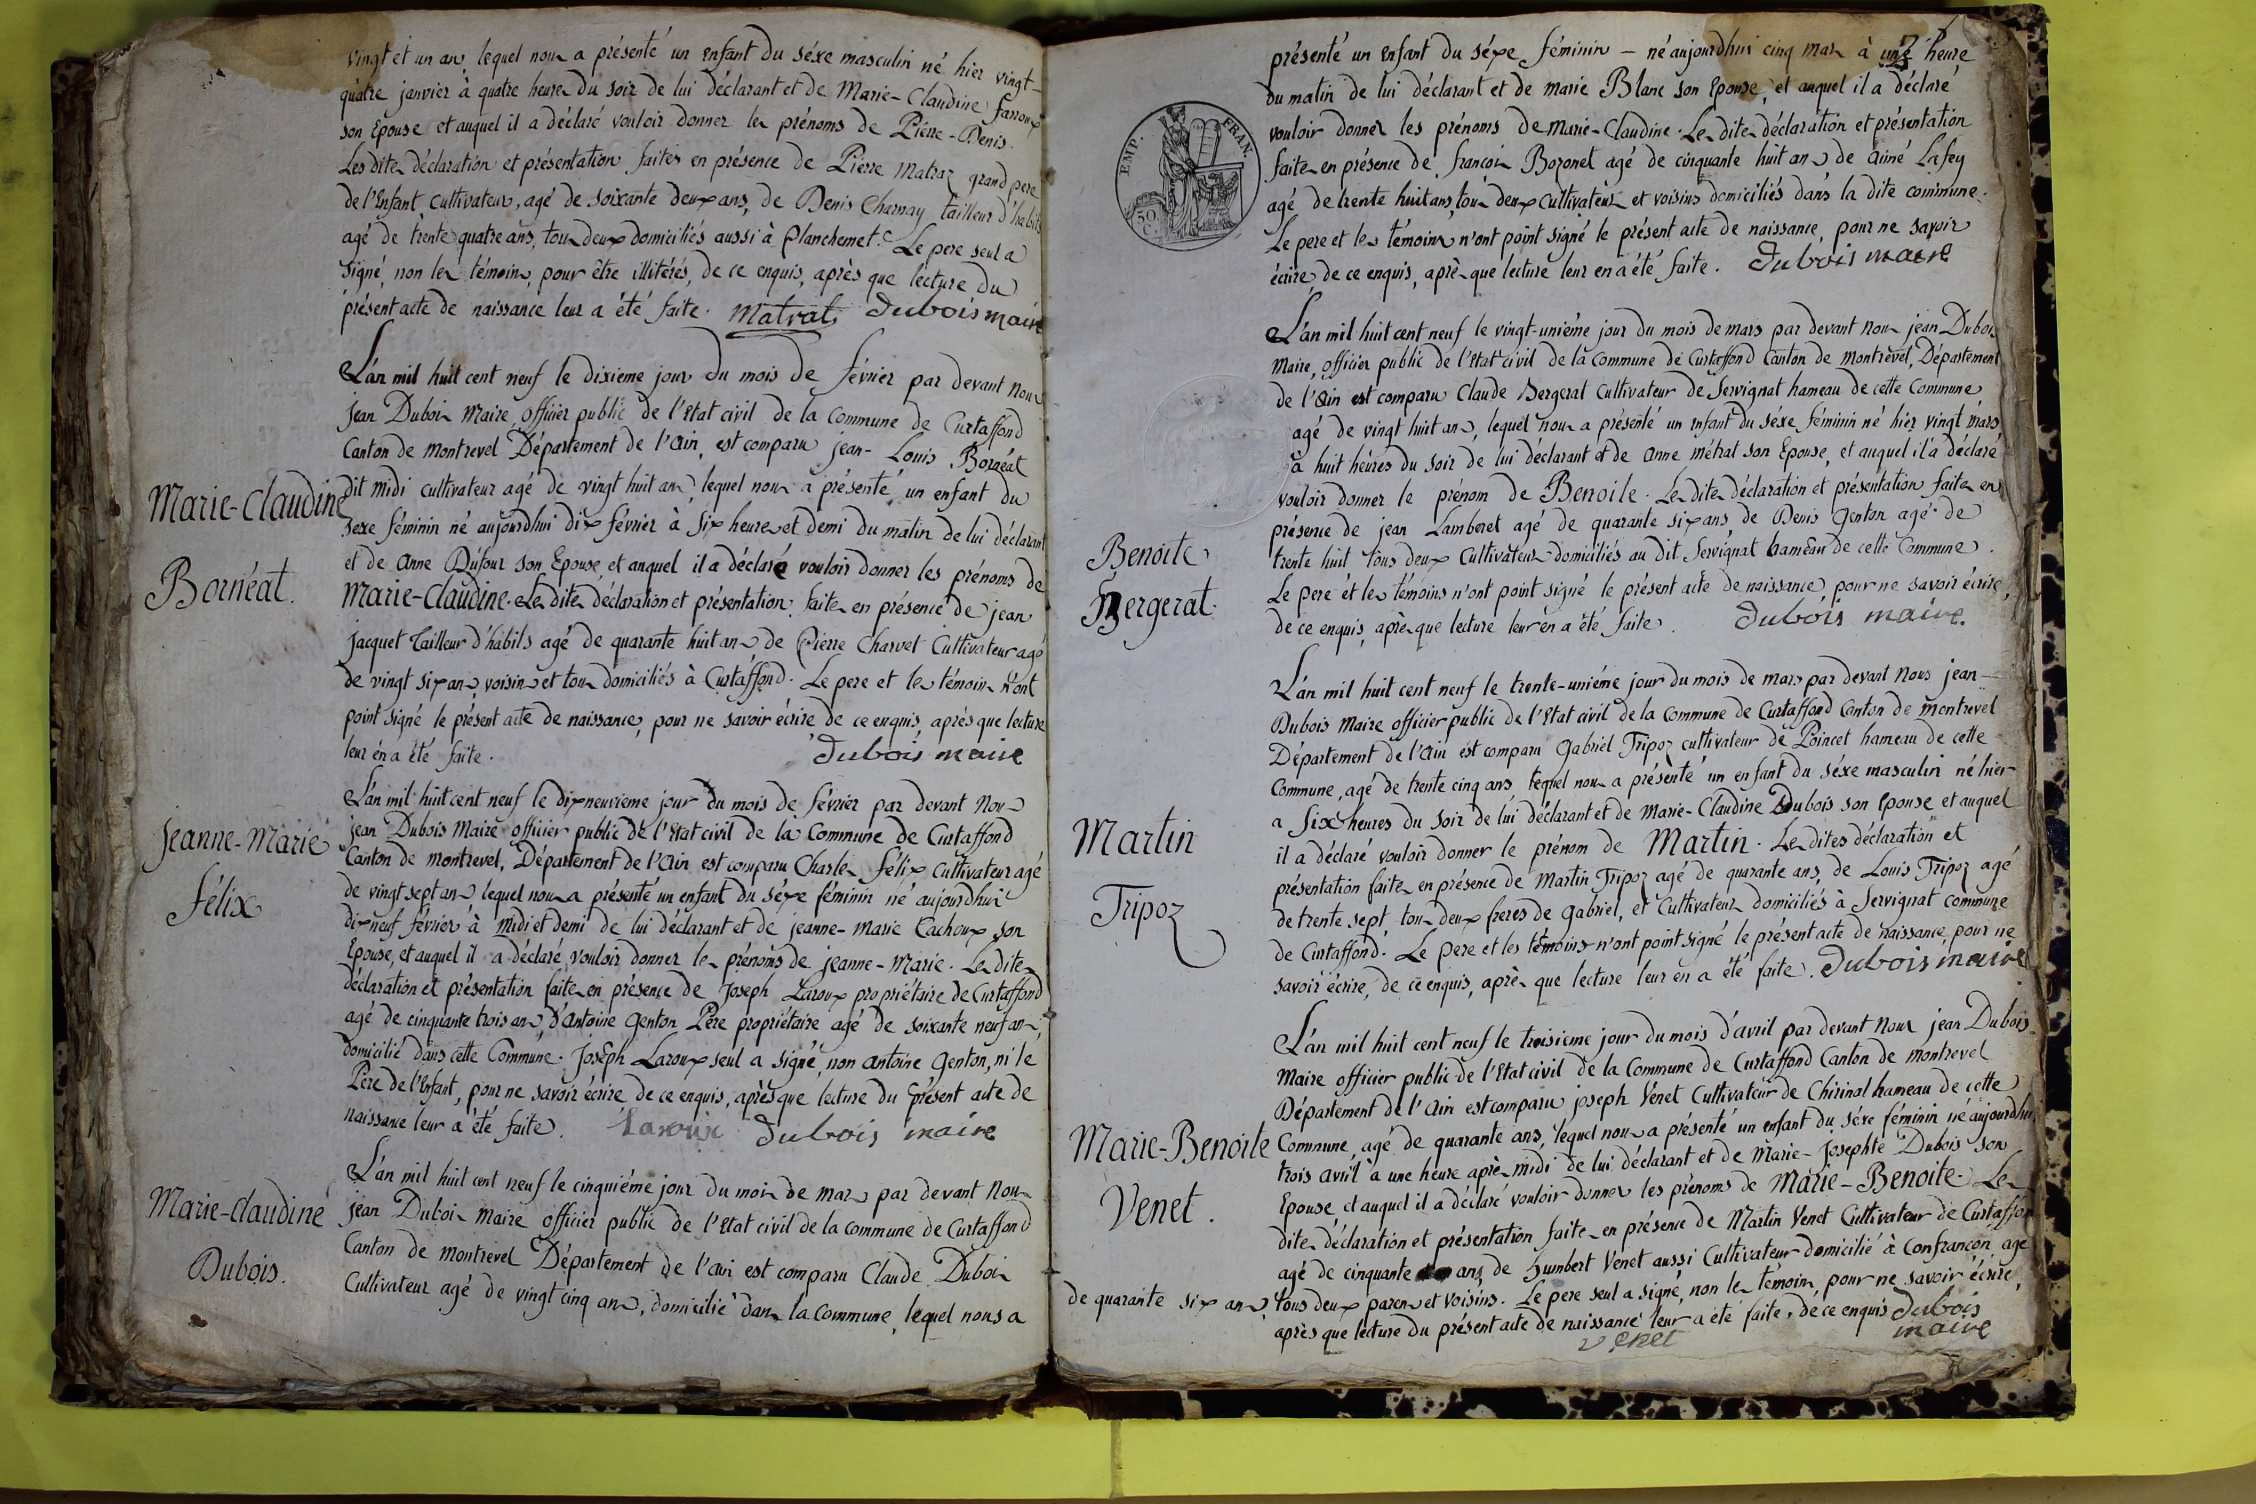 vingt et un ans, lequel nous a présenté un enfant du séxe masculin né hier vingt-
quatre janvier à quatre heures du soir de lui déclarant et de Marie-Claudine farroux
son Epouse et auquel il a déclaré vouloir donner les prénoms de Pierre-Denis.
Les dites déclaration et présentation faites en présence de Pierre Matraz grand pere
de l'Enfant, cultivateur, agé de soixante deux ans, de Denis Charnay tailleur d'habits
agé de trente quatre ans, tous deux domiciliés aussi à Planchemet. Le pere seul a
signé, non les témoins, pour être illitérés, de ce enquis, après que lecture du
présent acte de naissance leur a été faite. Matrat Dubois maire
L'an mil huit cent neuf le dixieme jour du mois de février par devant Nous
jean Dubois Maire, officier public de l'Etat civil de la commune de Curtaffond
Canton de Montrevel Département de l'ain, est comparu jean-Louis Bornéat
dit midi cultivateur agé de vingt huit ans, lequel nous a présenté un enfant du
Marie-Claudine
sexe féminin né aujourdhui dix février à six heures et demi du matin de lui déclarant
et de Anne Dufour son Epouse, et auquel il a déclaré vouloir donner les prénoms de
Bornéat.
Marie-Claudine. Les dites déclaration et présentation faites en présence de jean
jacquet Tailleur d'habits agé de quarante huit ans, de Pierre Charvet Cultivateur agé
de vingt six ans, voisins et tous domiciliés à Curtaffond. Le pere et les témoins n'ont
point signé le présent acte de naissance, pour ne savoir écrire de ce enquis, après que lecture
leur en a été faite. Dubois maire
L'an mil huit cent neuf le dix neuvieme jour du mois de février par devant Nous
jean Dubois Maire officier public de l'Etat civil de la Commune de Curtaffond
Jeanne-Marie
Canton de montrevel, Département de l'Ain est comparu Charles félix Cultivateur agé
de vingt sept ans, lequel nous a présenté un enfant du séxe féminin né aujourdhui
félix
dix neuf février à midi et demi de lui déclarant et de jeanne-marie Cachoux son
Epouse, et auquel il a déclaré vouloir donner les prénoms de jeanne-Marie. Les dites
déclaration et présentation faites en présence de Joseph Laroux propriétaire de Curtaffond
agé de cinquante trois ans, d'Antoine Genton Père propriétaire agé de soixante neuf ans,
domicilié dans cette Commune. Joseph Laroux seul a signé, non antoine Genton, ni le
Père de l'Enfant, pour ne savoir écrire de ce enquis, après que lecture du présent acte de
naissance leur a été faite. Laroux Dubois maire
L'an mil huit cent neuf le cinquiéme jour du mois de mars par devant Nous
Marie-Claudine
jean Dubois Maire officier public de l'Etat civil de la commune de Curtaffond
Canton de Montrevel Département de l'ain est comparu Claude Dubois
Dubois.
Cultivateur agé de vingt cinq ans, domicilié dans la Commune, lequel nous a
présenté un enfant du séxe féminin - né aujourdhui cinq mars à heure
du matin de lui déclarant et de marie Blanc son Epouse, et auquel il a déclaré
vouloir donner les prénoms de Marie-Claudine. Les dites déclaration et présentation
EMP. FRAN.
50 C.
faites en présence de françois Bozonet agé de cinquante huit ans de aimé Lafey
agé de trente huit ans, tous deux cultivateurs et voisins domiciliés dans la dite commune.
Le pere et les témoins n'ont point signé le présent acte de naissance, pour ne savoir
écrire, de ce enquis, après que lecture leur en a été faite. Dubois maire
L'an mil huit cent neuf le vingt-unième jour du mois de mars par devant Nous jean Dubois
Maire, officier public de l'Etat civil de la commune de Curtaffond Canton de montrevel, Département
de l'ain est comparu Claude Bergerat Cultivateur de Servignat hameau de cette Commune
agé de vingt huit ans, lequel nous a présenté un enfant du séxe féminin né hier vingt mars
à huit heures du soir de lui déclarant et de anne métrat son Epouse, et auquel il a déclaré
vouloir donner le prénom de Benoîte. Les dites déclaration et présentation faites en
présence de jean Lamberet agé de quarante six ans de Denis Genton agé de
Benoite
trente huit tous deux Cultivateurs domiciliés au dit Servignat hameau de cette Commune.
Bergerat.
Le pere et les témoins n'ont point signé le présent acte de naissance, pour ne savoir écrire,
de ce enquis, après que lecture leur en a été faite. Dubois maire.
L'an mil huit cent neuf le trente-uniéme jour du mois de mars par devant Nous jean
Dubois Maire officier public de l'Etat civil de la Commune de Curtaffond Canton de montrevel
Département de l'ain est comparu Gabriel Tripoz cultivateur de Poincet hameau de cette
Commune, agé de trente cinq ans, lequel nous a présenté un enfant du séxe masculin né hier
Martin
a six heures du soir de lui déclarant et de Marie-Claudine Dubois son Epouse et auquel
il a déclaré vouloir donner le prénom de Martin. Les dites déclaration et
Tripoz
présentation faites en présence de Martin Tripoz agé de quarante ans, de Louis Tripoz agé
de trente sept, tous deux freres de gabriel, et Cultivateurs domiciliés à Servignat commune
de Curtaffond. Le pere et les témoins n'ont point signé le présent acte de naissance, pour ne
savoir écrire, de ce enquis, après que lecture leur en a été faite. Dubois maire
L'an mil huit cent neuf le troisieme jour du mois d'avril par devant Nous jean Dubois
Maire officier public de l'Etat civil de la Commune de Curtaffond Canton de montrevel
Département de l'ain est comparu joseph Venet Cultivateur de Chirinal hameau de cette
Marie-Benoite
Commune, agé de quarante ans, lequel nous a présenté un enfant du séxe féminin né aujourdhui
trois avril à une heure après-midi de lui déclarant et de Marie-Josephte Dubois son
Venet.
Epouse et auquel il a déclaré vouloir donner les prénoms de Marie-Benoite. Les
dites déclaration et présentation faites en présence de Martin Venet Cultivateur de Curtaffond
agé de cinquante ans, de humbert Venet aussi Cultivateur domicilié à Confrançon agé
de quarante six ans, tous deux parens et voisins. Le pere seul a signé, non les témoins, pour ne savoir écrire,
après que lecture du présent acte de naissance leur a été faite, de ce enquis Dubois
venet maire